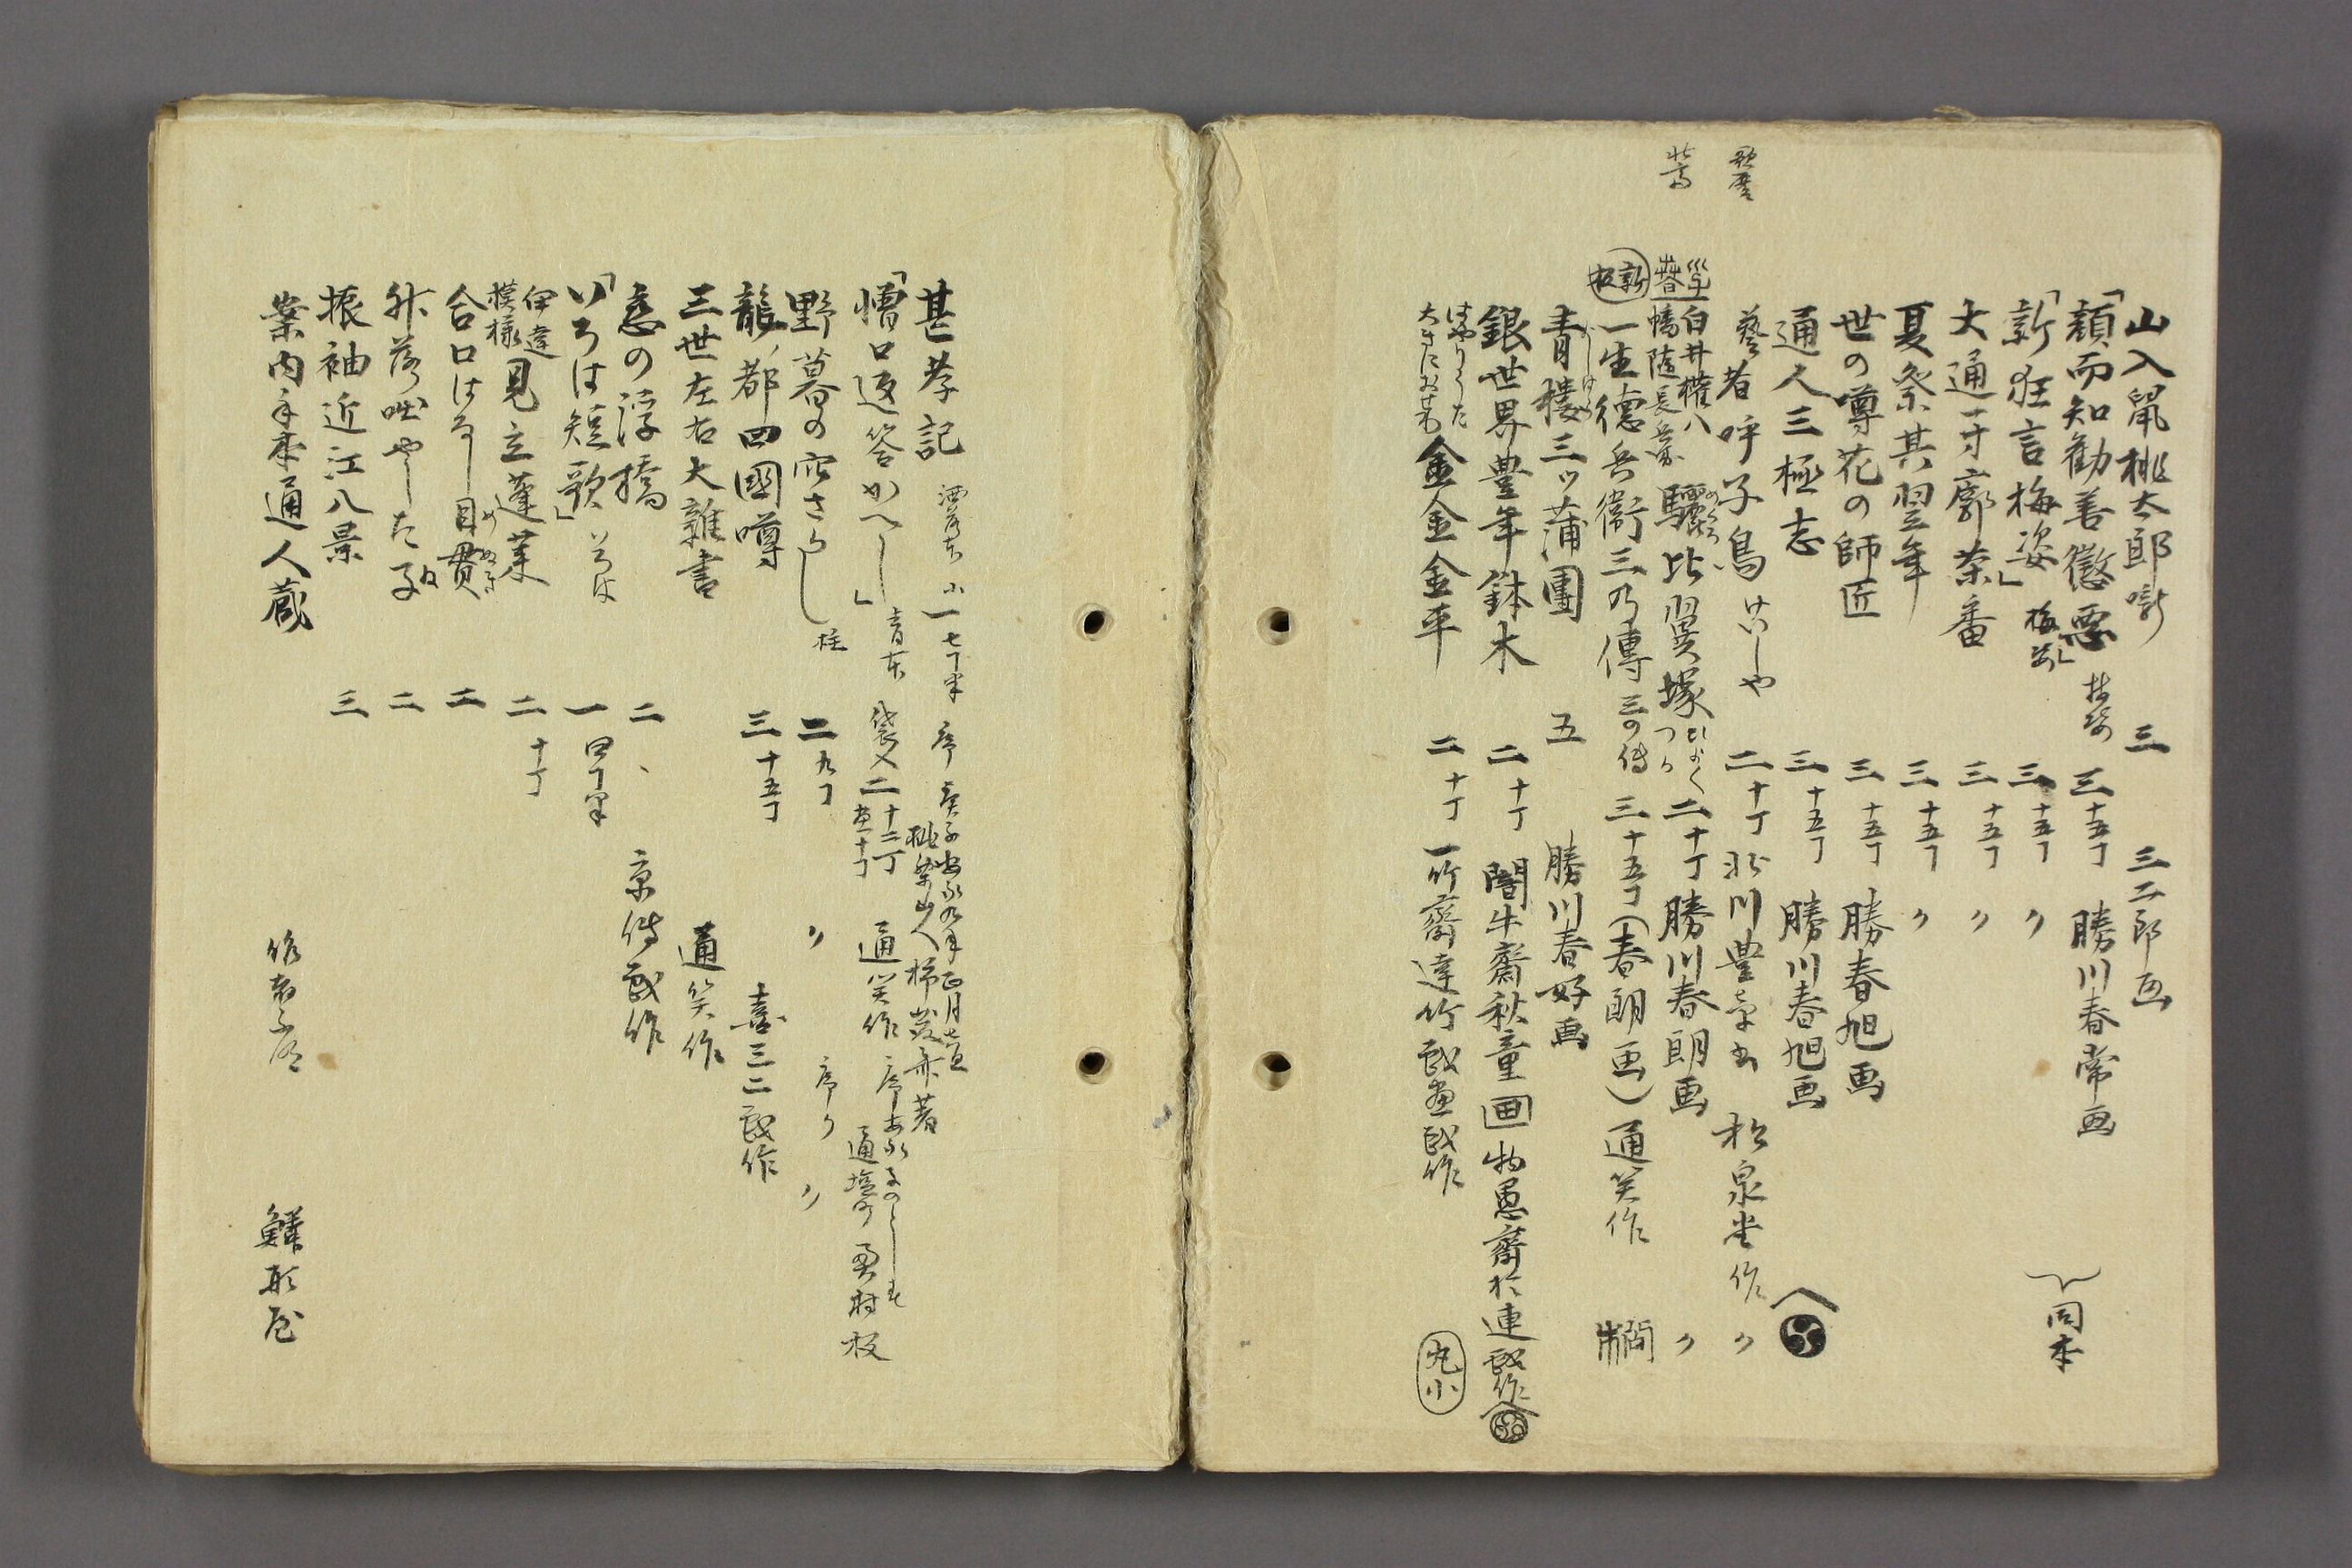 山入鼠桃太郎噺 三 三二郎画
「頼而知勧善懲悪」 三十五丁 勝川春常画
「新狂言梅姿」 三十五丁 〃
大通一寸廓茶番 三十五丁 〃
夏祭其翌年 三十五丁 〃
同本
世の噂花の師匠 三十五丁 勝春旭画
通人三極志 三十五丁 勝川春旭画
歌麿
藝者呼子鳥 けいしや 二十丁 北川豊章画 松泉堂作 〃
白井権八
幡随長兵衛 驪比翼塚 ひよくつか 二十丁 勝川春朗画 〃
新板 一生徳兵衛三乃傳 三の傳 三十五丁 (春朗画) 通笑作
青楼三ツ蒲團 五 勝川春好画
銀世界豊年鉢木 二十丁 闇牛齋秋童画 物愚齋於連戯作
はやりうた
大きにおせわ 金金金金平 二十丁 一竹齋達竹戯画戯作 丸小
甚孝記 洒落本 小一 七丁半 序 庚子安永九年正月
「憎口返答かへし」 青本 袋入二 十二丁 通笑作 序
野暮の 二 九丁 〃 序〃 〃
龍都四國噂 三十五丁 喜三二戯作
三世左右大雑書 通笑作
恋の浮橋 二 京傳戯作
「いろは短歌」 いろは 一 四丁半
伊達
模様 見立蓬莱 二十丁
合口はなし目貫 二
二
振袖近江八景 三
案内手本通人蔵 作者不知 鱗形屋